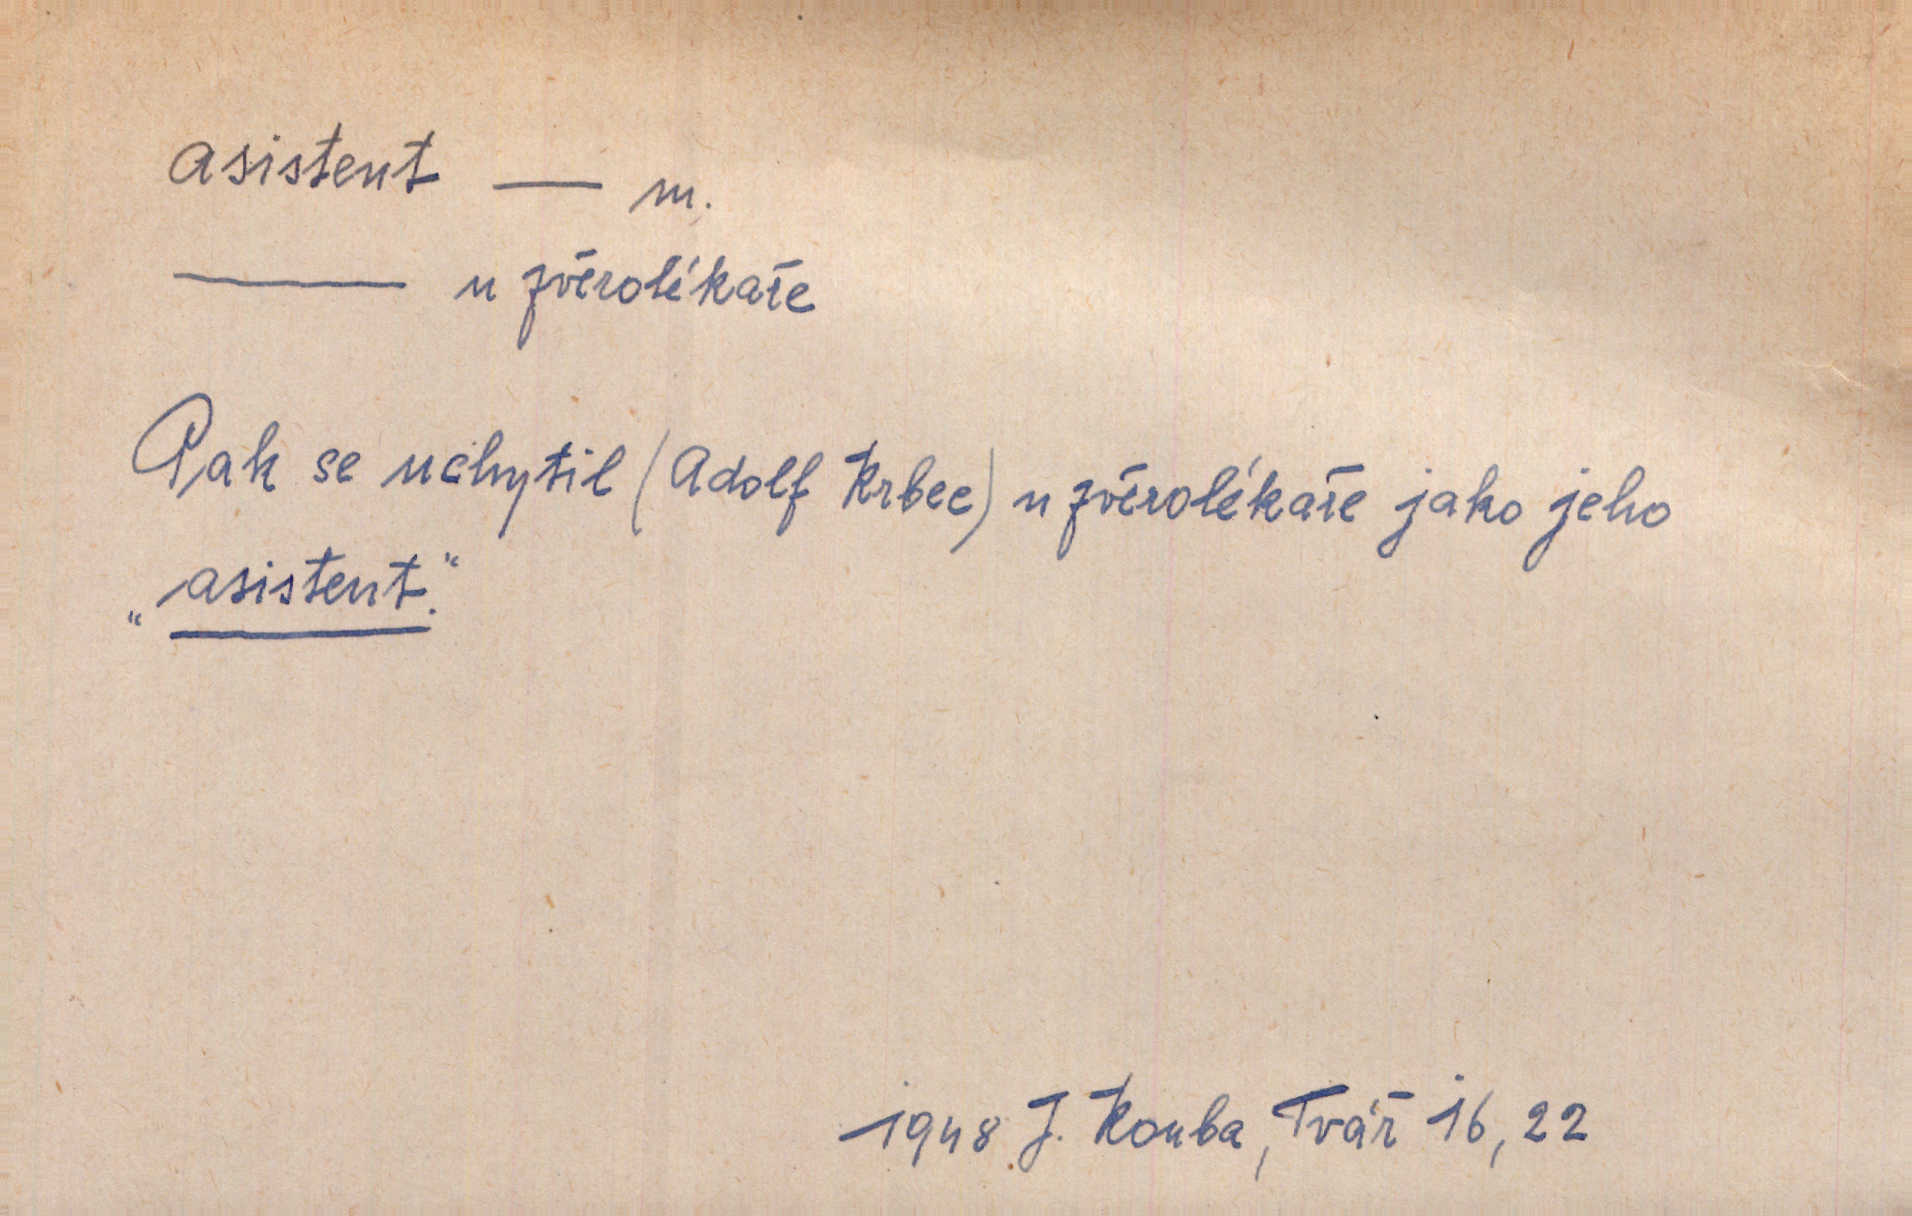 asistent — m.
—— u zvěrolékaře
Pak se uchytil (Adolf Krbec) u zvěrolékaře jako jeho
„asistent.“
1948 J. Kouba, Tvář 16, 22